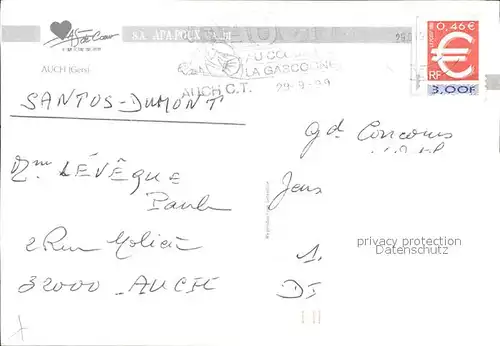 As de Coeur
AUCH (Gers)
S.A. APA-POUX
LA GASCOGNE
AUCH C.T. 29-9-99
0,46 €
RF
3,00F
SANTOS-DUMONT
Gd Concours
Mme LÉVÊQUE
Paule
Jeux
2 Rue Molière
1.
32000 AUCH
DI
privacy protection
by DELCAMPE